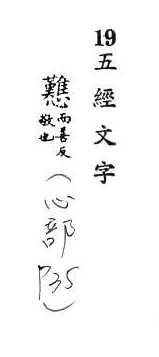 19五經文字
戁而善反敬也(心部P35)